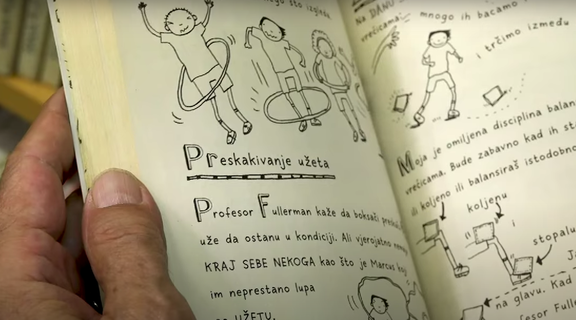 što izgleda
Preskakivanje užeta
Profesor Fullerman kaže da boksači
uže da ostanu u kondiciji. Ali vjerojatno
KRAJ SEBE NEKOGA kao što je Marcus koji
im neprestano lupa
UŽETU.
NA DANU
mnogo ih bacamo
vrećicama.
i trčimo između
Moja je omiljena disciplina
vrećicama. Bude zabavno kad ih
ili koljeno ili balansiraš istodobno
koljenu
i
stopalu
na glavu. Kad